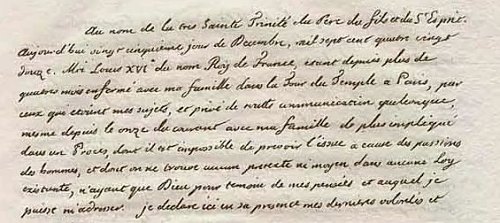 Au nom de la tres Sainte Trinité du Pere du fils et du St Esprit.
Aujourd'hui vingt cinquieme jour de Decembre, mil sept cent quatre vingt
douze. Moi Louis XVIe du nom Roy de France, etant depuis plus de
quatres mois enfermé avec ma famille dans la Tour du Temple a Paris, par
ceux qui etoient mes sujets, et privé de toutte communication quelconque,
mesme depuis le onze du courant avec ma famille de plus impliqué
dans un Proces, dont il est impossible de prevoir l'issue a cause des passions
des hommes, et dont on ne trouve aucun pretexte ni moyen dans aucune Loy
existante, n'ayant que Dieu pour temoin de mes pensées et auquel je
puisse m'adresser. je declare ici en sa presence mes dernieres volontés et